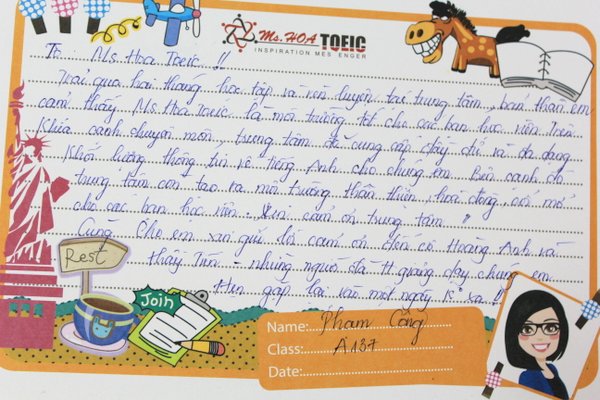 Ms. HOA TOEIC
INSPIRATION MESSENGER
Tới Ms Hoa Toeic !!
Trải qua hai tháng học tập và rèn luyện tại trung tâm, bản thân em
cảm thấy Ms Hoa Toeic là môi trường tốt cho các bạn học viên. Trên
khía cạnh chuyên môn, trung tâm đã cung cấp đầy đủ và đa dạng
khối lượng thông tin về tiếng Anh cho chúng em. Bên cạnh đó
trung tâm còn tạo ra môi trường thân thiện, hoà đồng, cởi mở
cho các bạn học viên. Xin cảm ơn trung tâm !!
Cũng cho em xin gửi lời cảm ơn đến cô Hoàng Anh và
thầy Tiến - những người đã giảng dạy chúng em
Hẹn gặp lại vào một ngày k xa !!
Rest
Join
Name: Phạm Công
Class: A137
Date: